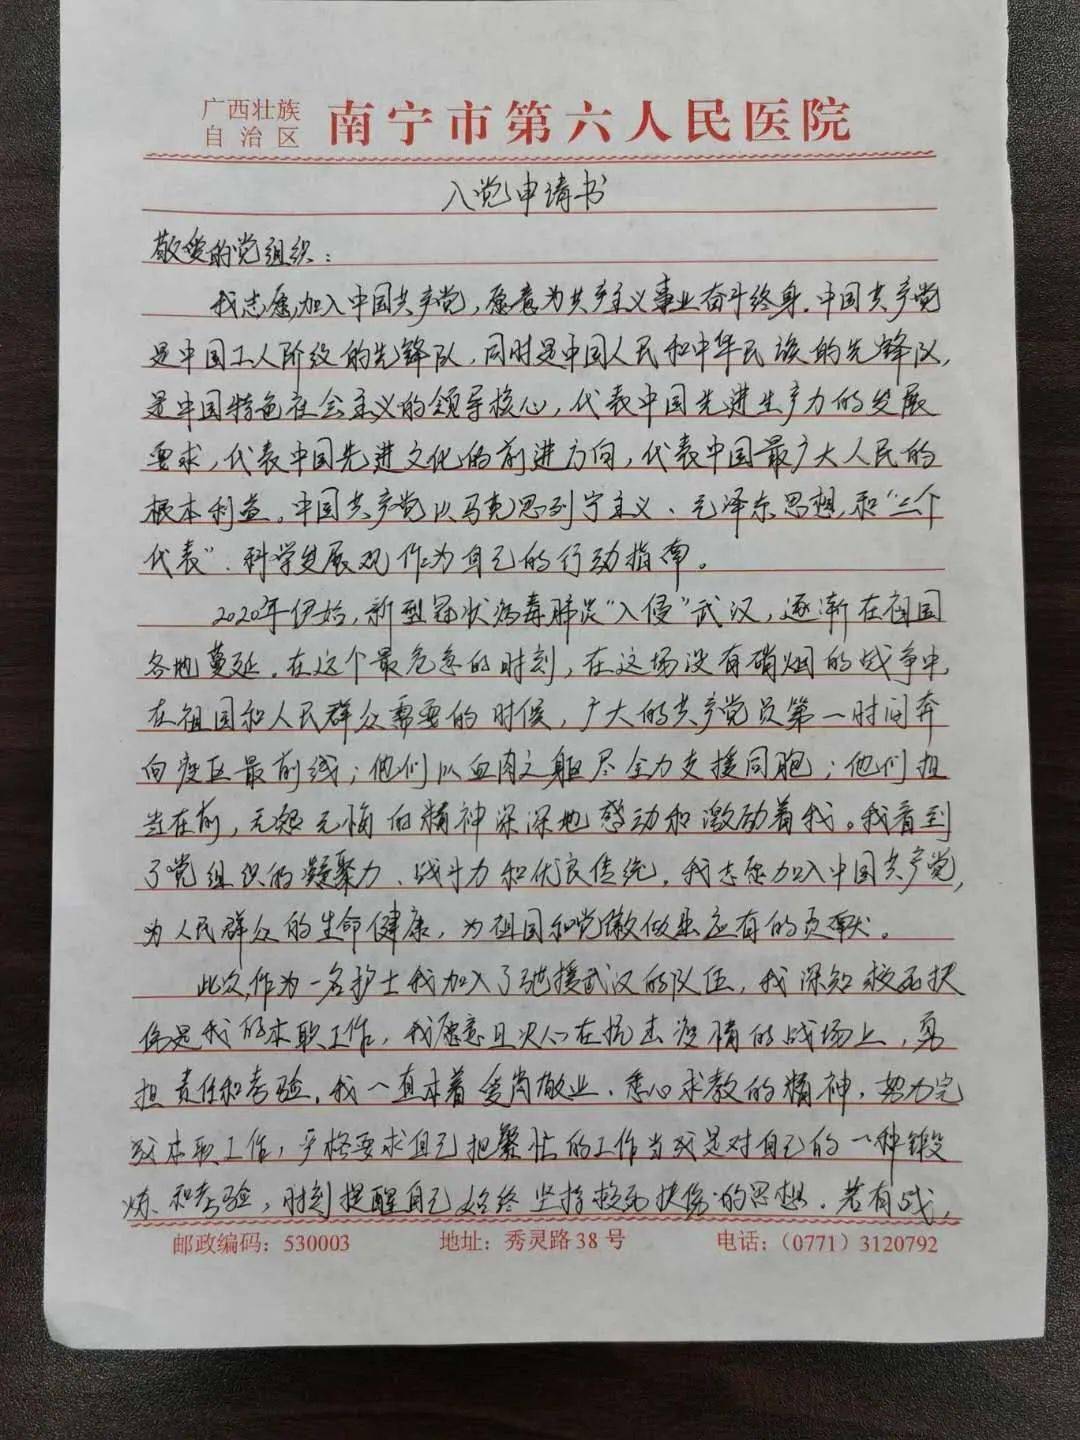 广西壮族
自治区
南宁市第六人民医院
入党申请书
敬爱的党组织：
我志愿加入中国共产党，愿意为共产主义事业奋斗终身．中国共产党
是中国工人阶级的先锋队，同时是中国人民和中华民族的先锋队，
是中国特色社会主义的领导核心，代表中国先进生产力的发展
要求，代表中国先进文化的前进方向，代表中国最广大人民的
根本利益。中国共产党以马克思列宁主义、毛泽东思想和“三个
代表”、科学发展观作为自己的行动指南。
2020年伊始，新型冠状病毒肺炎“入侵”武汉，逐渐在祖国
各地蔓延．在这个最危急的时刻，在这场没有硝烟的战争中，
在祖国和人民群众需要的时候，广大的共产党员第一时间奔
向疫区最前线；他们以血肉之躯尽全力支援同胞；他们担
当在前，无怨无悔的精神深深地感动和激励着我。我看到
了党组织的凝聚力、战斗力和优良传统．我志愿加入中国共产党，
为人民群众的生命健康，为祖国和党做出应有的贡献。
此次，作为一名护士我加入了驰援武汉的队伍，我深知救死扶
伤是我的本职工作，我愿意且决心在抗击疫情的战场上，勇
担责任和考验．我一直本着爱岗敬业、悉心求教的精神，努力完
成本职工作，严格要求自己把繁忙的工作当成是对自己的一种锻
炼和考验，时刻提醒自己始终坚持救死扶伤的思想．若有战，
邮政编码：530003
地址：秀灵路38号
电话：（0771）3120792